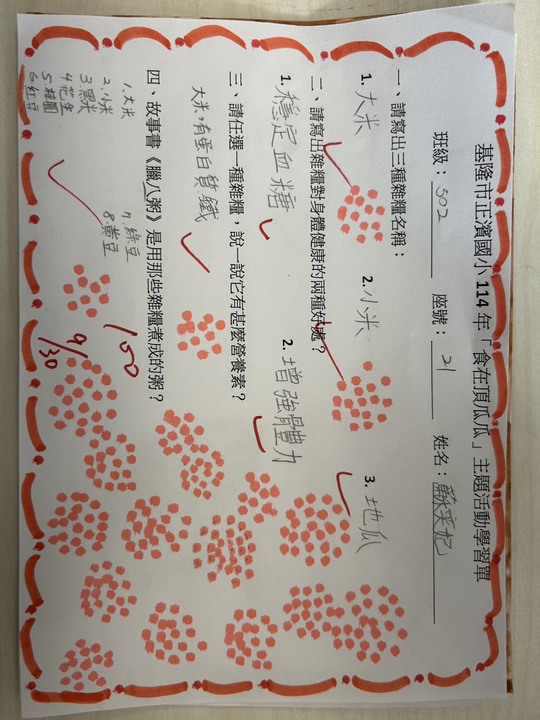 基隆市正濱國小 114 年「食在頂瓜瓜」主題活動學習單
班級：502 座號：21 姓名：蘇奕妃
一、請寫出三種雜糧名稱：
1. 大米 2. 小米 3. 地瓜
二、請寫出雜糧對身體健康的兩種好處？
1. 穩定血糖 2. 增強體力
三、請任選一種雜糧，說一說它有甚麼營養素？
大米，有蛋白質纖
四、故事書《臘八粥》是用那些雜糧煮成的粥？
1.大米
2.小米
3黑米
4花生
5.桂圓
6紅豆
7.綠豆
8.黃豆
100
9/30